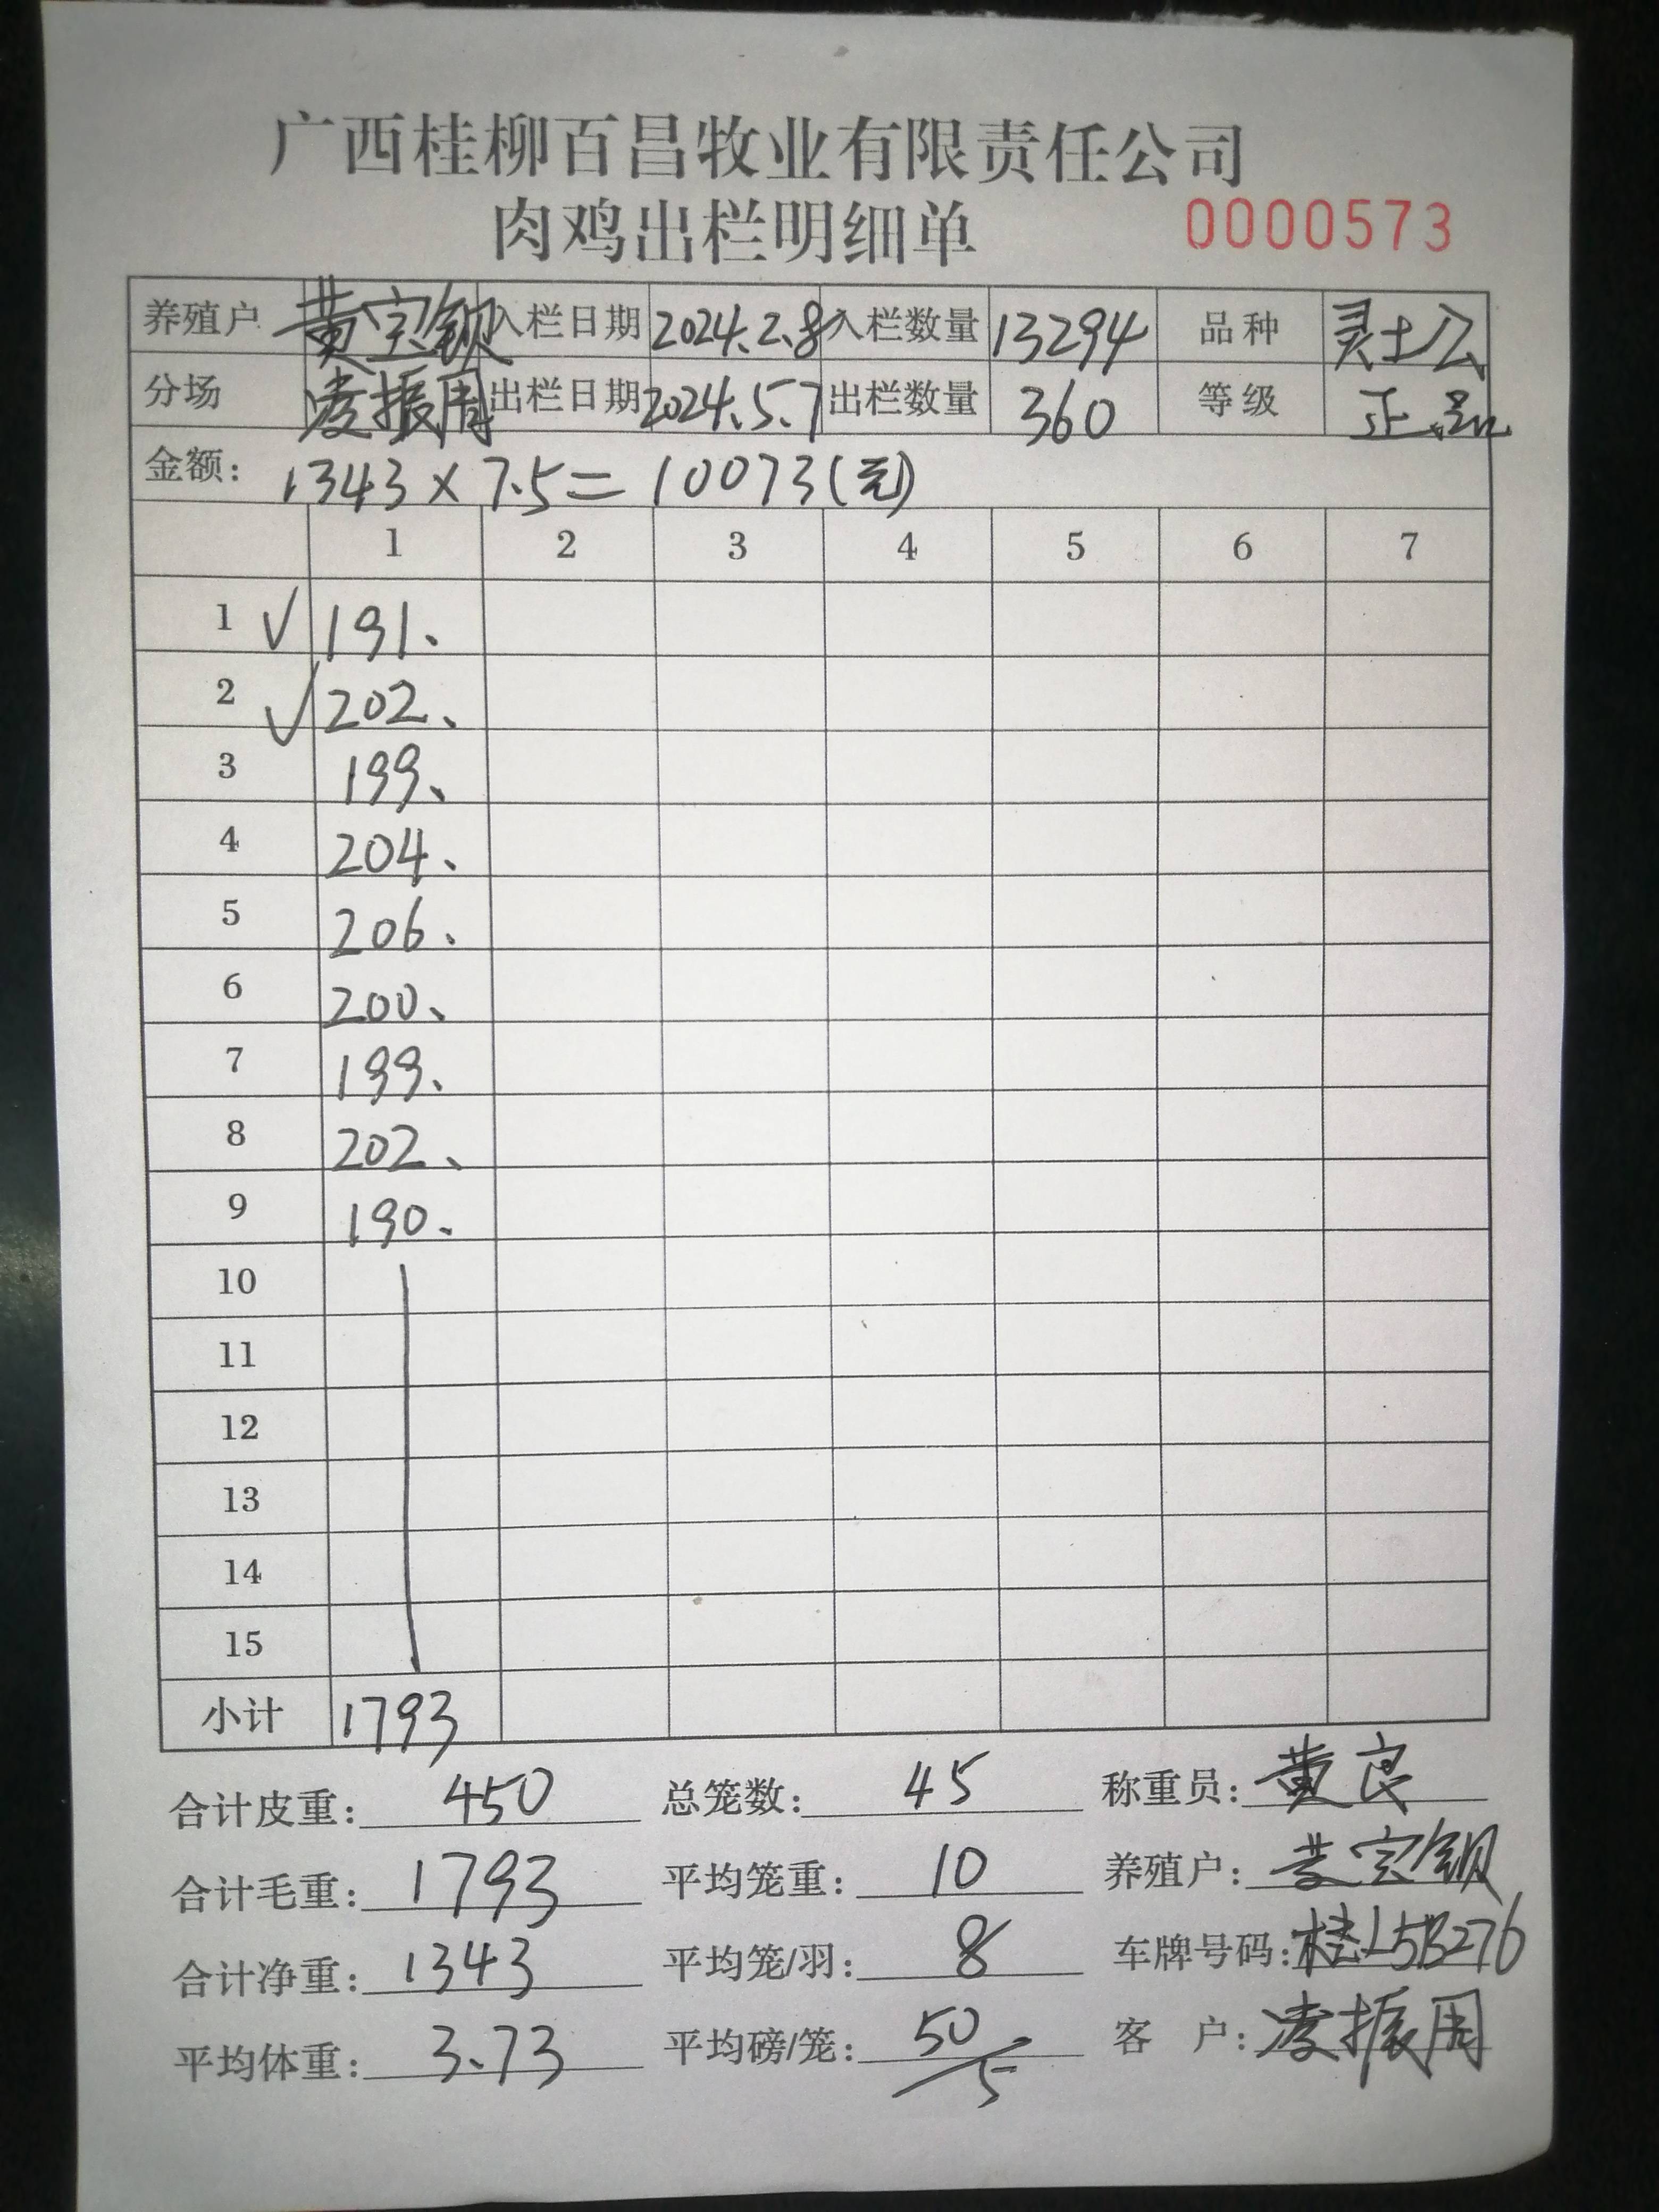 广西桂柳百昌牧业有限责任公司
肉鸡出栏明细单 0000573
养殖户 黄宝钡 入栏日期 2024.2.8 入栏数量 13294 品种 灵土公
分场 凌振周 出栏日期 2024.5.7 出栏数量 360 等级 正品
金额: 1343×7.5=10073(元)
1 2 3 4 5 6 7
1 √ 191、
2 √ 202、
3 199、
4 204、
5 206、
6 200、
7 199、
8 202、
9 190、
10
11
12
13
14
15
小计 1793
合计皮重: 450 总笼数: 45 称重员: 黄良
合计毛重: 1793 平均笼重: 10 养殖户: 黄宝钡
合计净重: 1343 平均笼/羽: 8 车牌号码: 桂L5B276
平均体重: 3.73 平均磅/笼: 50/5 客户: 凌振周